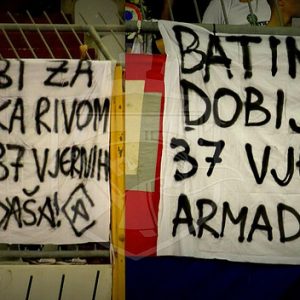 BI ZA
KA RIVOM
37 VJERNIH
DAŠA!
BATIN
DOBIJ
37 VJ
ARMAD